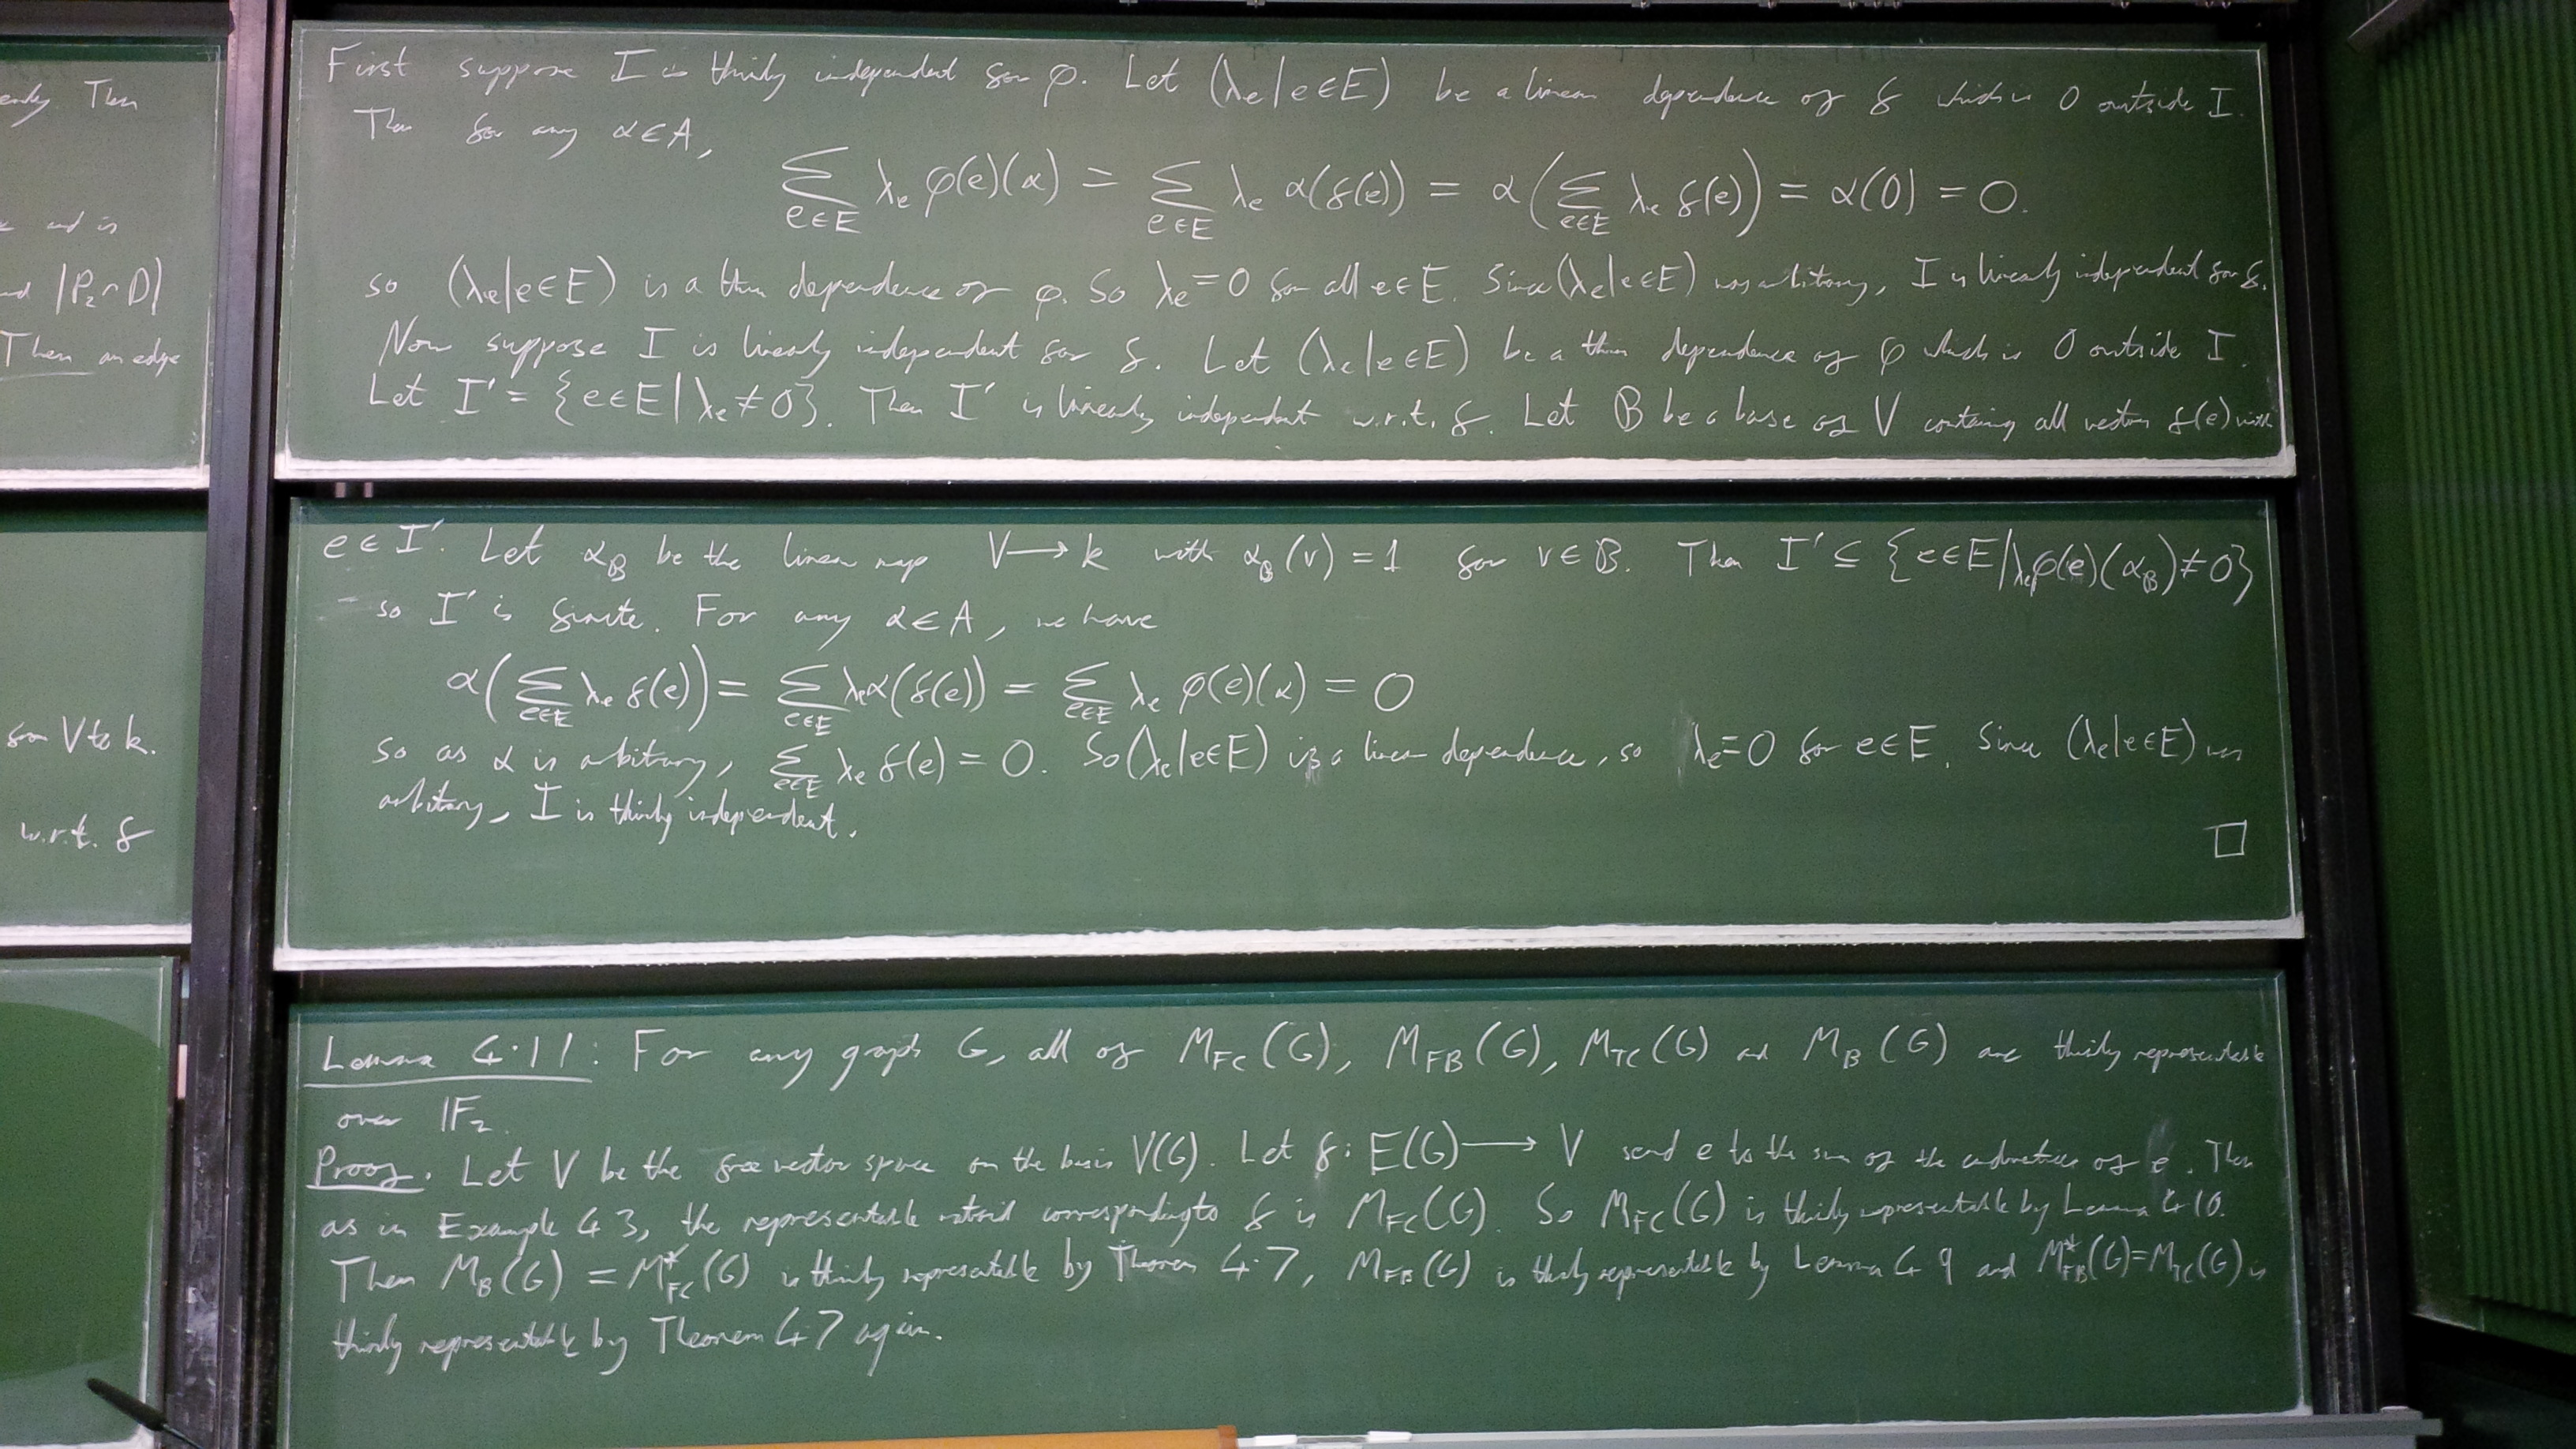 Then
and is
|P₂∩D|
Then an edge
from V to k.
w.r.t. f
First suppose I is thinly independent for φ. Let (λₑ|e∈E) be a linear dependence of f which is 0 outside I.
Then for any α∈A,
∑_{e∈E} λₑ φ(e)(α) = ∑_{e∈E} λₑ α(f(e)) = α(∑_{e∈E} λₑ f(e)) = α(0) = 0.
so (λₑ|e∈E) is a thin dependence of φ. So λₑ=0 for all e∈E. Since (λₑ|e∈E) was arbitrary, I is linearly independent for f.
Now suppose I is linearly independent for f. Let (λₑ|e∈E) be a thin dependence of φ which is 0 outside I.
Let I' = {e∈E|λₑ≠0}. Then I' is linearly independent w.r.t. f. Let B be a base of V containing all vectors f(e) with
e∈I'. Let α_B be the linear map V⟶k with α_B(v)=1 for v∈B. Then I' ⊆ {e∈E|λₑφ(e)(α_B)≠0}
so I' is finite. For any α∈A, we have
α(∑_{e∈E} λₑ f(e)) = ∑_{e∈E} λₑα(f(e)) = ∑_{e∈E} λₑ φ(e)(α) = 0
So as α is arbitrary, ∑_{e∈E} λₑ f(e) = 0. So (λₑ|e∈E) is a linear dependence, so λₑ=0 for e∈E. Since (λₑ|e∈E) was
arbitrary, I is thinly independent.
□
Lemma 4.11: For any graph G, all of M_FC(G), M_FB(G), M_TC(G) and M_B(G) are thinly representable
over 𝔽₂.
Proof. Let V be the free vector space on the basis V(G). Let f: E(G)⟶V send e to the sum of the endvertices of e. Then
as in Example 4.3, the representable matroid corresponding to f is M_FC(G). So M_FC(G) is thinly representable by Lemma 4.10.
Then M_B(G) = M*_FC(G) is thinly representable by Theorem 4.7, M_FB(G) is thinly representable by Lemma 4.9 and M*_FB(G)=M_TC(G) is
thinly representable by Theorem 4.7 again.